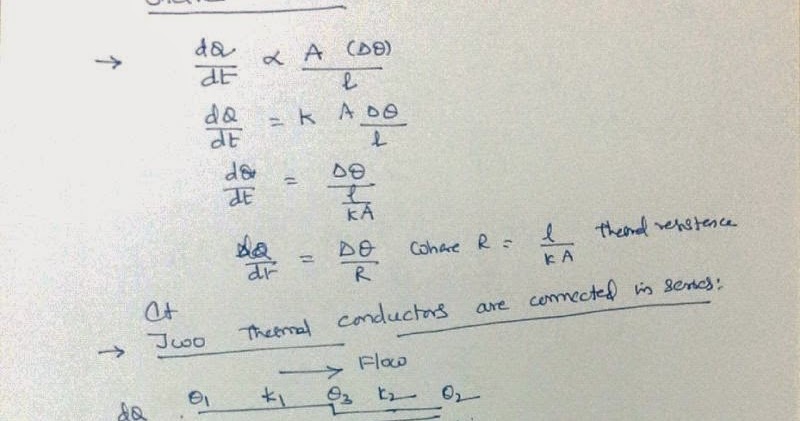 → dQ/dt ∝ A (Δθ)/l
dQ/dt = K A Δθ/l
dQ/dt = Δθ/(l/KA)
dQ/dt = Δθ/R where R = l/KA thermal resistence
→ Two thermal conductors are connected in series:
→ Flow
θ1 K1 θ3 K2 θ2
dQ